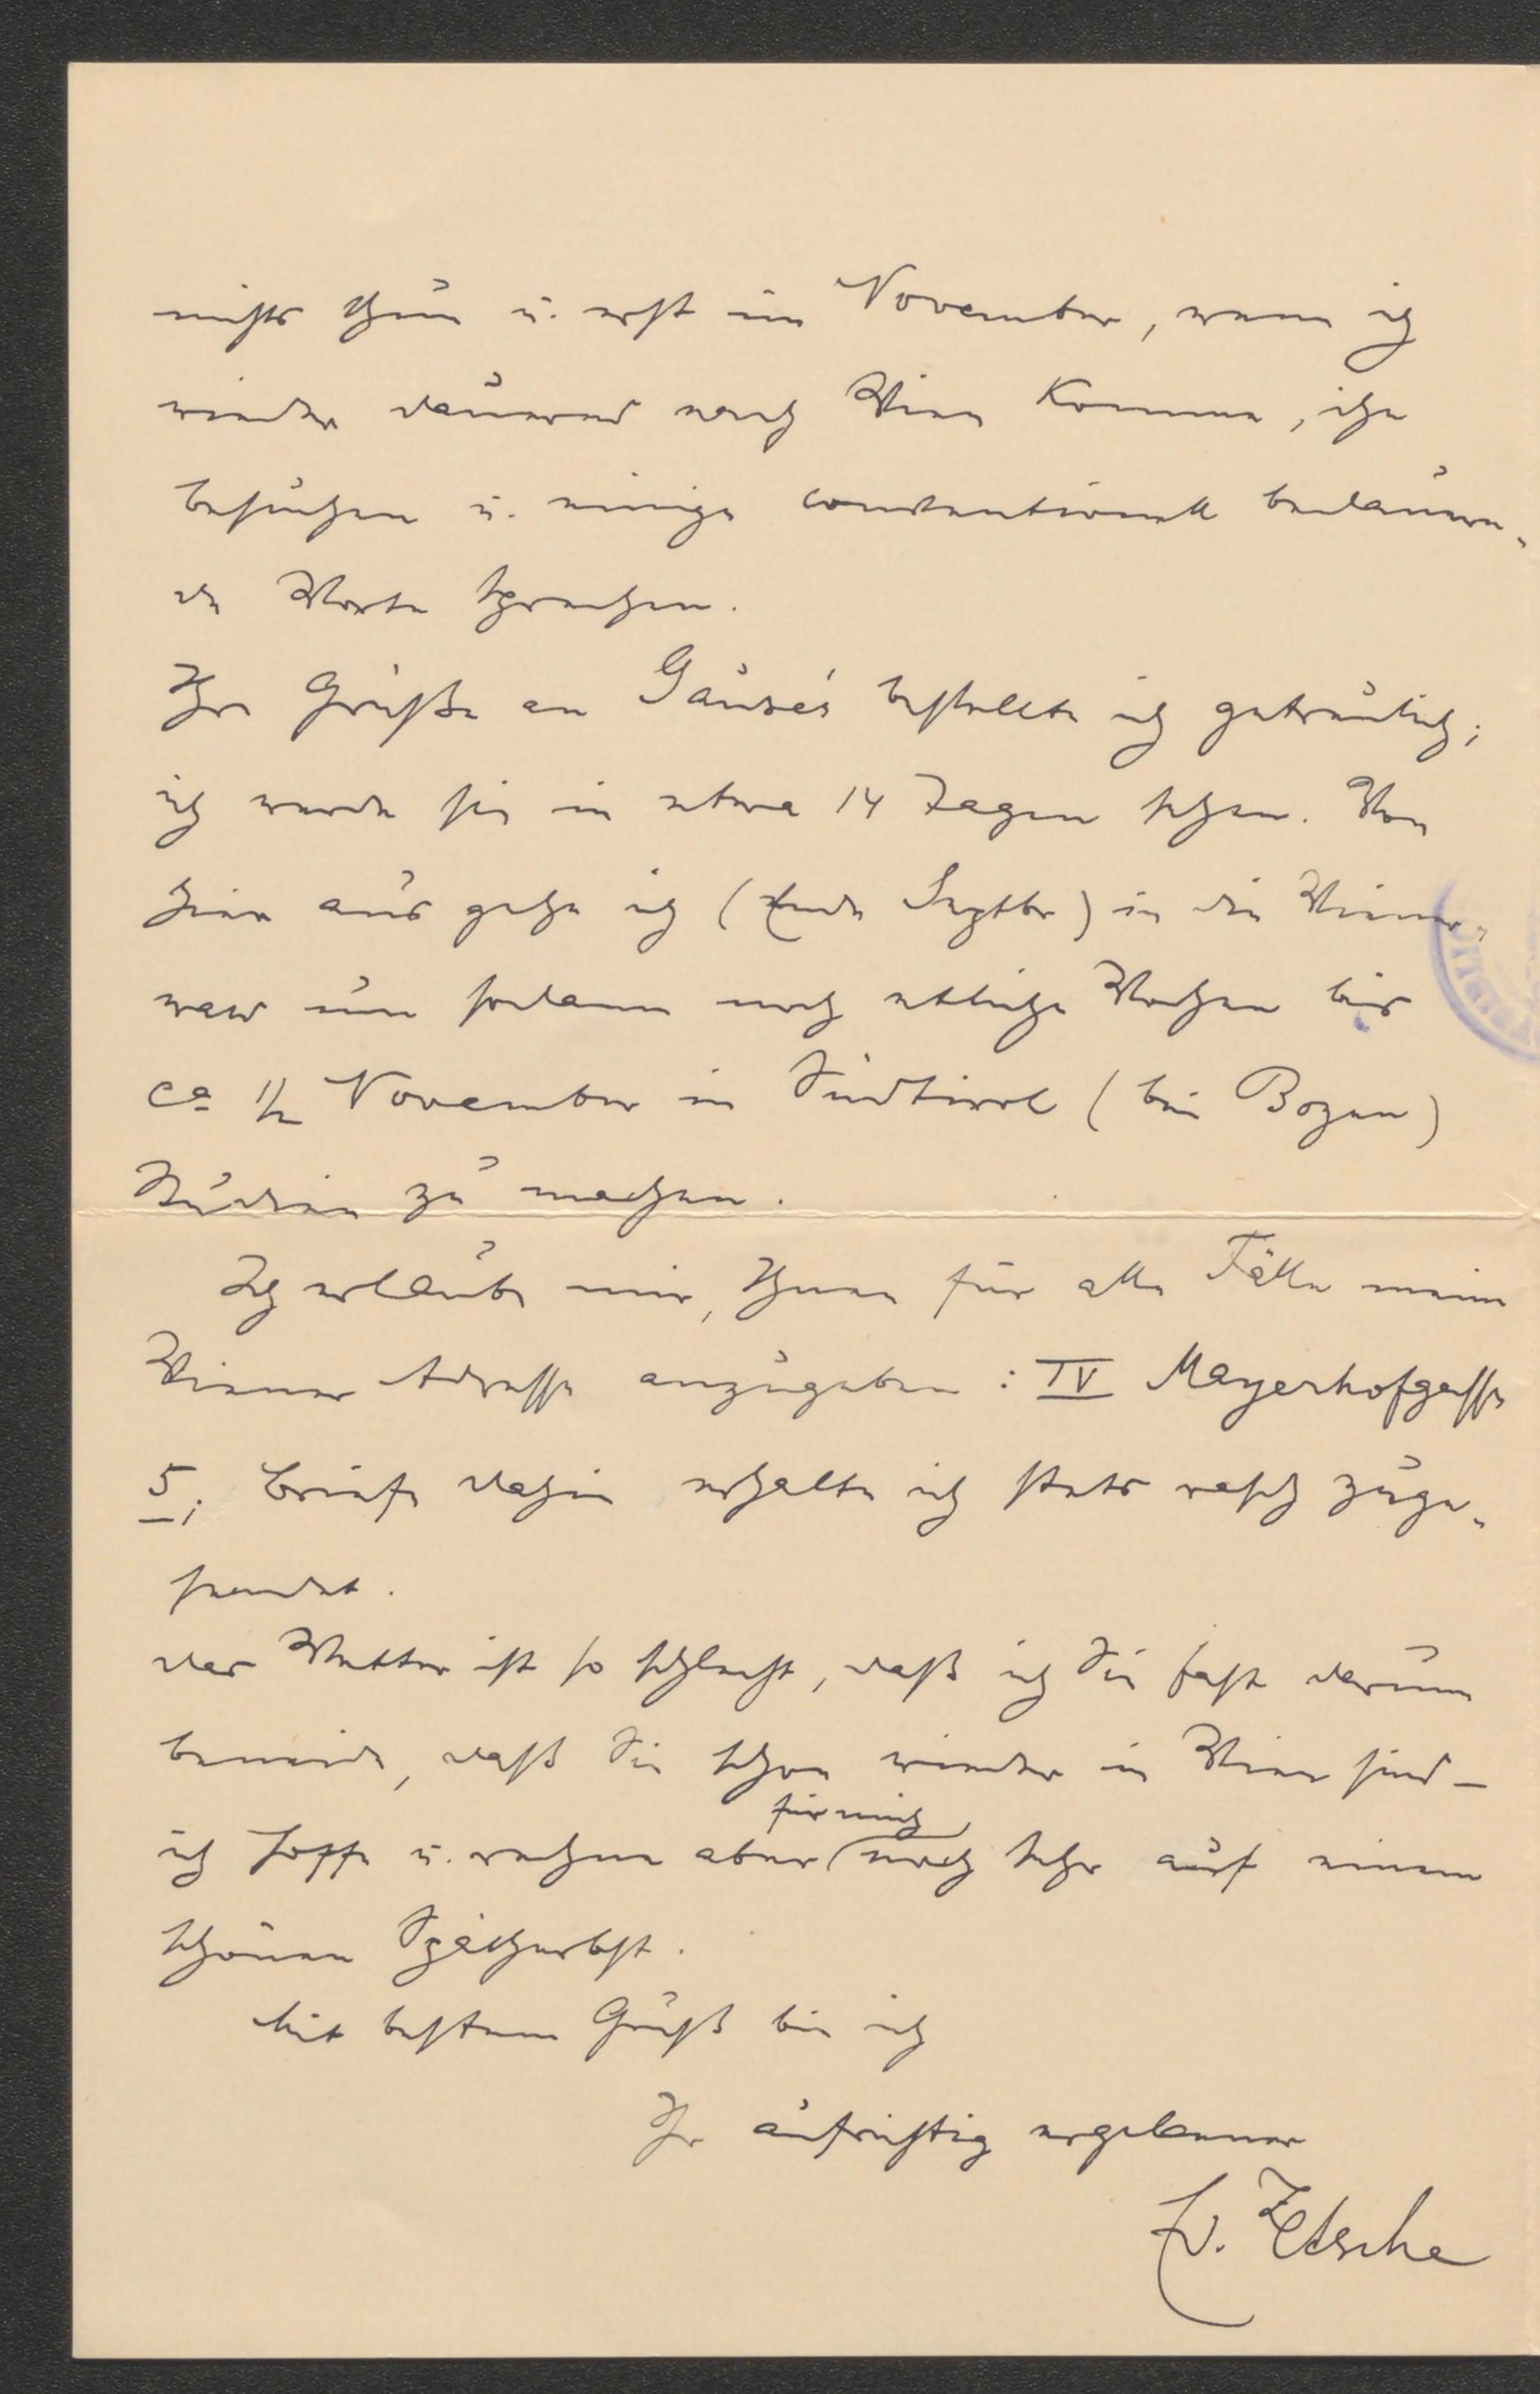 nichts thun u. erst im November, wenn ich
wieder dauernd nach Wien komme, ihn
besuchen u. einige conventionell bedauern-
de Worte sprechen.
Ihre Grüße an bestellte ich getreulich;
ich werde sie in etwa 14 Tagen sehen. Von
hier aus gehe ich (Ende Septbr) in die Wiener-
um sodann noch etliche Wochen bis
ca 1/2 November in Südtirol (bei Bozen)
Studien zu machen.
Ich erlaube mir, Ihnen für alle Fälle meine
Wiener Adresse anzugeben: IV Mayerhofgasse
5; Briefe dahin erhalte ich stets rasch zuge-
sendet.
Das Wetter ist so schlecht, daß ich Sie fast darum
beneide, daß Sie schon wieder in Wien sind –
für mich
ich hoffe u. rechne aber noch sehr auf einen
schönen Spätherbst.
Mit bestem Gruß bin ich
Ihr aufrichtig ergebener
Ed. Zetsche